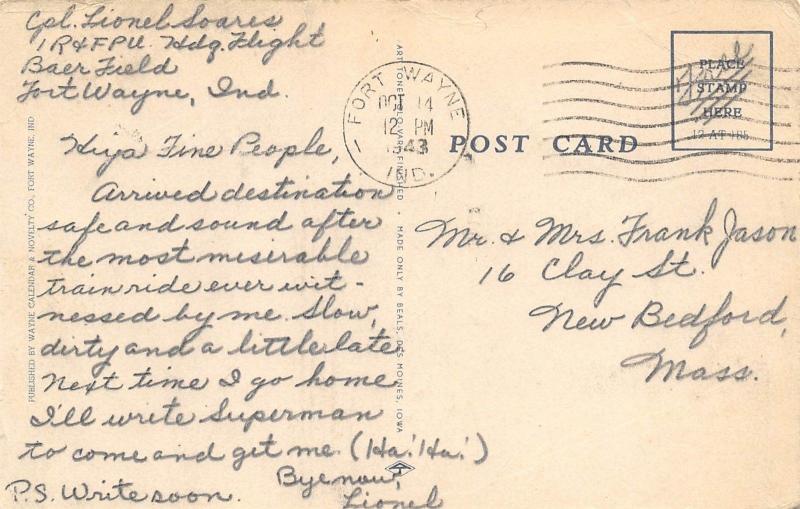 Cpl. Lionel Soares
1 R & F PU. Hdq. Flight
Baer Field
Fort Wayne, Ind.
Hiya Fine People,
Arrived destination
safe and sound after
the most misirable
train ride ever wit-
nessed by me. Slow,
dirty and a little late
Next time I go home
I'll write Superman
to come and get me. (Ha! Ha!)
Bye now,
Lionel
P.S. Write soon.
PUBLISHED BY WAYNE CALENDAR & NOVELTY CO., FORT WAYNE, IND
FINISHED • MADE ONLY BY BEALS, DES MOINES, IOWA
FORT WAYNE
OCT 14
12 PM
1943
IND.
POST CARD
Free
PLACE
STAMP
HERE
Mr. & Mrs. Frank Jason
16 Clay St.
New Bedford,
Mass.